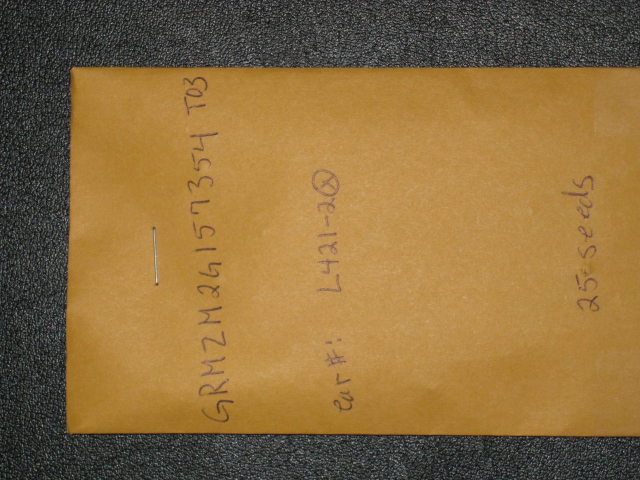 GRMZM2G157354 T03
ear #: L421-2ⓧ
25 seeds